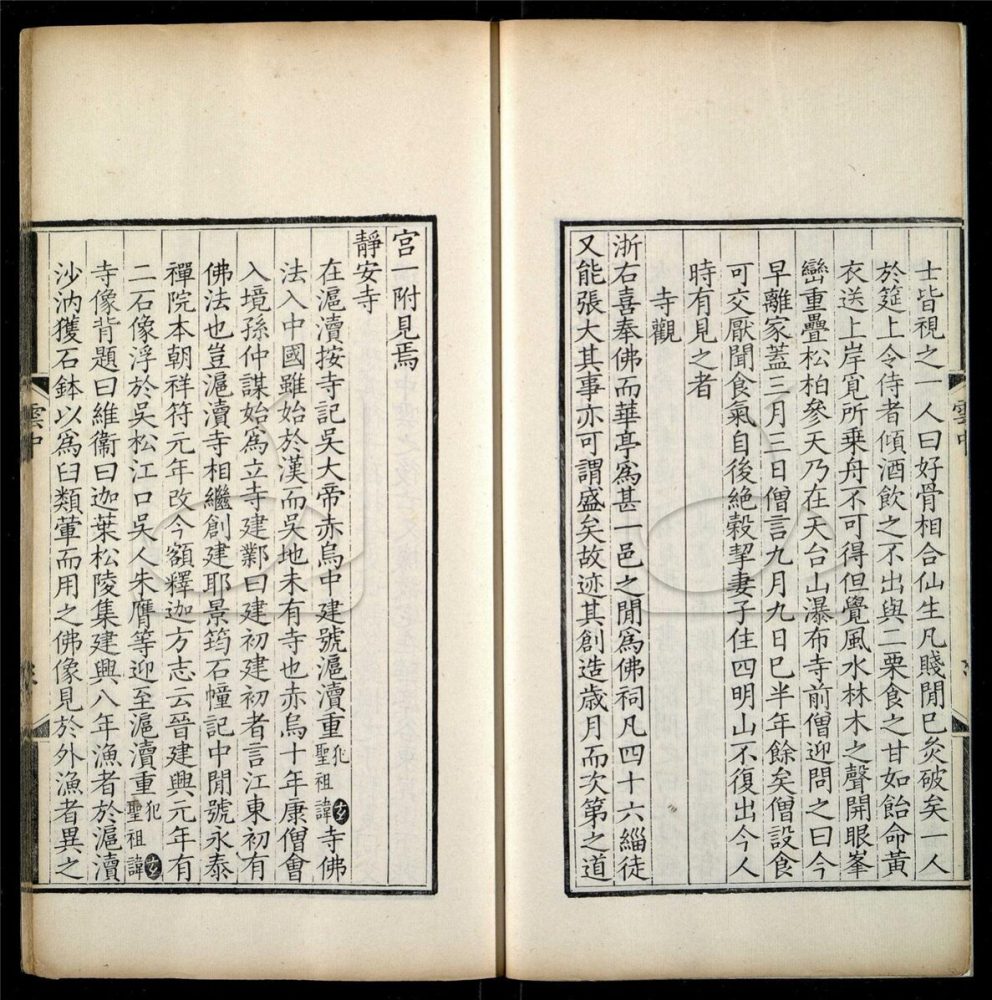 士皆視之一人曰好骨相合仙生凡賤閒巳灸破矣一人
於筵上令侍者傾酒飲之不出與二栗食之甘如飴命黃
衣送上岸寛所乗舟不可得但覺風水林木之聲開眼峯
巒重疊松柏參天乃在天台山瀑布寺前僧迎問之曰今
早離家蓋三月三日僧言九月九日巳半年餘矣僧設食
可交厭聞食氣自後絶榖挈妻子住四明山不復出今人
時有見之者
寺觀
浙右喜奉佛而華亭爲甚一邑之閒爲佛祠凡四十六緇徒
又能張大其事亦可謂盛矣故迹其創造歲月而次第之道
雲中
宫一附見焉
靜安寺
在滬瀆按寺記吳大帝赤烏中建號滬瀆重犯聖祖諱玄寺佛
法入中國雖始於漢而吳地未有寺也赤烏十年康僧會
入境孫仲謀始爲立寺建鄴曰建初建初者言江東初有
佛法也豈滬瀆寺相繼創建耶景筠石幢記中閒號永泰
禪院本朝祥符元年改今額釋迦方志云晉建興元年有
二石像浮於吳松江口吳人朱膺等迎至滬瀆重犯聖祖諱玄
寺像背題曰維衞曰迦葉松陵集建興八年漁者於滬瀆
沙汭獲石鉢以爲臼類葷而用之佛像見於外漁者異之
雲中